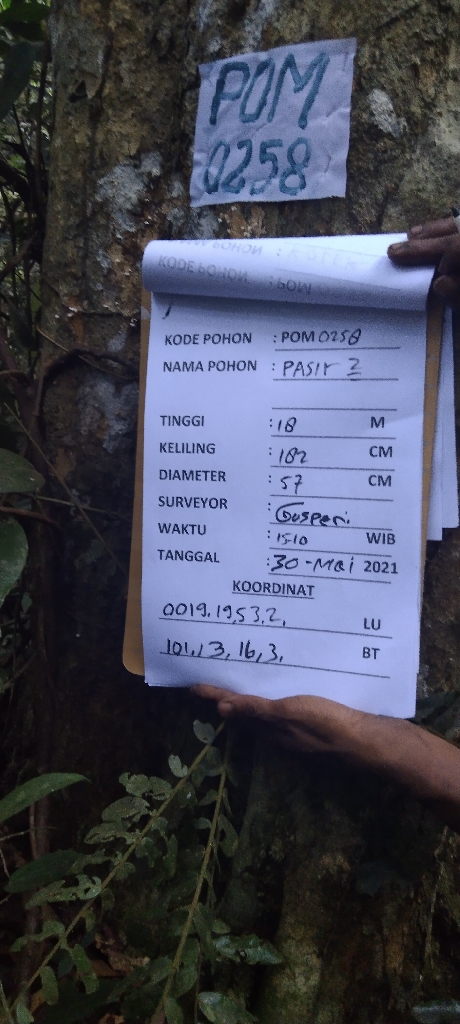 POM
0258
KODE POHON : POM 0258
NAMA POHON : PASIr 2
TINGGI : 18 M
KELILING : 182 CM
DIAMETER : 57 CM
SURVEYOR : Gusperi.
WAKTU : 15.10 WIB
TANGGAL : 30-Mei 2021
KOORDINAT
0019.19,53,2, LU
101,13,16,3, BT